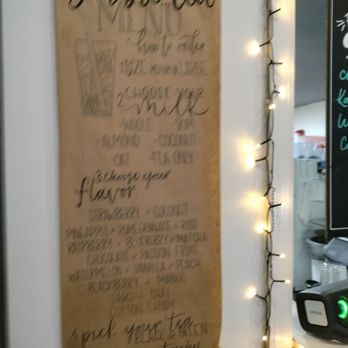 MENU
how to order
1 SIZE LARGE
2 CHOOSE YOUR
milk
WHOLE SKIM
ALMOND COCONUT
OAT TEA ONLY
3 choose your
flavor
STRAWBERRY COCONUT
PINEAPPLE POMEGRANATE ROSE
RASPBERRY BLUEBERRY MATCHA
CHOCOLATE PASSION FRUIT
WATERMELON VANILLA PEACH
BLACKBERRY MANGO
TARO CHAI
COTTON CANDY
4 pick your tea
BLACK GREEN